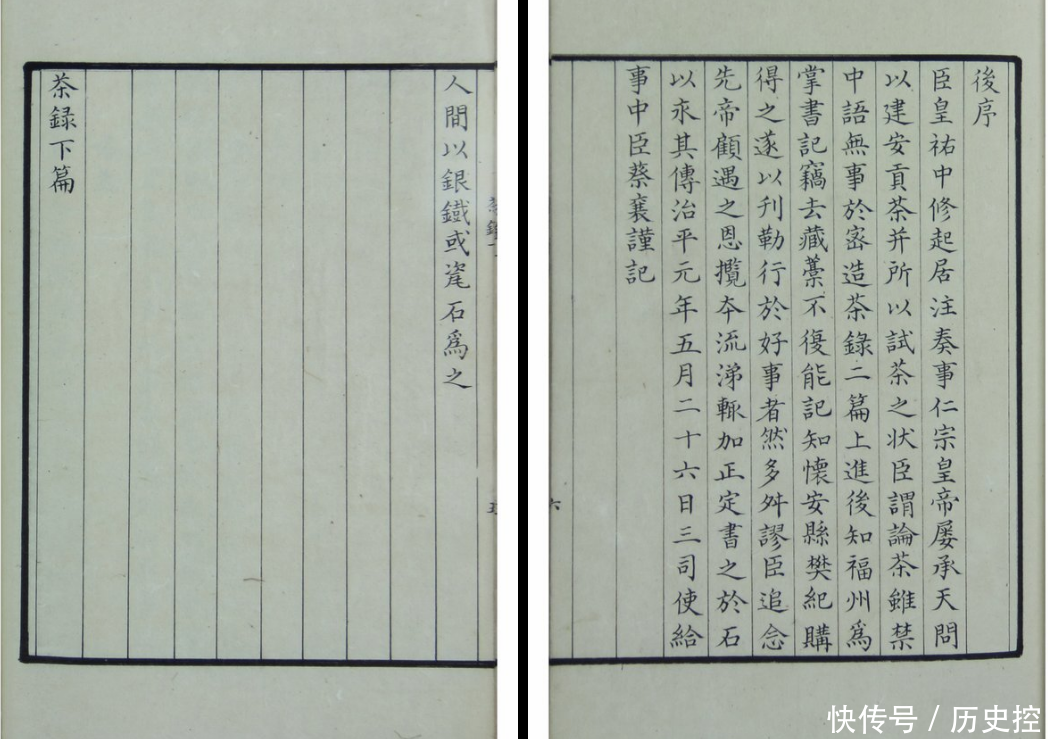 人間以銀鐵或瓷石爲之
茶録下篇
後序
臣皇祐中修起居注奏事仁宗皇帝屡承天問
以建安貢茶并所以試茶之状臣謂論茶雖禁
中語無事於宻造茶錄二篇上進後知福州爲
掌書記竊去藏藁不復能記知懷安縣樊紀購
得之遂以刋勒行於好事者然多舛謬臣追念
先帝顧遇之恩攬夲流涕輙加正定書之於石
以永其傳治平元年五月二十六日三司使給
事中臣蔡襄謹記
六
快传号 / 历史控